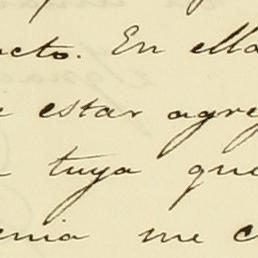 acto. En ella
e estar agre
a tuya que
enia me c